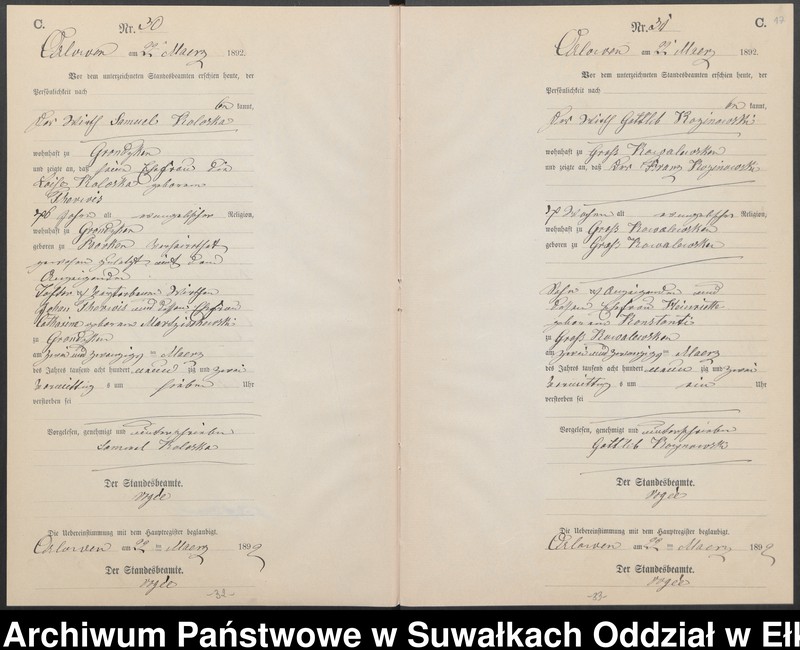 C.
Nr. 30
Orlowen am 22ten Maerz 1892.
Vor dem unterzeichneten Standesbeamten erschien heute, der
Persönlichkeit nach
kannt,
der Wirth Samuel Koloska
wohnhaft zu Grondzken
und zeigte an, daß seine Ehefrau die
Koloska geborene
Jahre alt evangelischer Religion,
wohnhaft zu Grondzken
geboren zu
gewesen zuletzt mit dem
Anzeigenden
Tochter
und dessen Ehefrau
geborene
zu Grondzken
am zwei und zwanzigsten Maerz
des Jahres tausend acht hundert neun zig und zwei
Vormittags um sieben Uhr
verstorben sei
Vorgelesen, genehmigt und unterschrieben
Samuel Koloska
Der Standesbeamte.
Die Uebereinstimmung mit dem Hauptregister beglaubigt.
Orlowen am 22 ten Maerz 1892
Der Standesbeamte.
-32-
C.
Nr. 31
Orlowen am 22ten Maerz 1892.
Vor dem unterzeichneten Standesbeamten erschien heute, der
Persönlichkeit nach
kannt,
der Wirth Gottlieb Rozinowski
wohnhaft zu Groß Kowalewsken
und zeigte an, daß der Franz Rozinowski
Wochen alt evangelischer Religion,
wohnhaft zu Groß Kowalewsken
geboren zu Groß Kowalewsken
Sohn des Anzeigenden und
dessen Ehefrau Heinriette
geborene Konstanti
zu Groß Kowalewsken
am zwei und zwanzigsten Maerz
des Jahres tausend acht hundert neun zig und zwei
Vormittags um ein Uhr
verstorben sei
Vorgelesen, genehmigt und unterschrieben
Gottlieb Rozinowski
Der Standesbeamte.
Die Uebereinstimmung mit dem Hauptregister beglaubigt.
Orlowen am 22 ten Maerz 1892
Der Standesbeamte.
-33-
Archiwum Państwowe w Suwałkach Oddział w Ełk